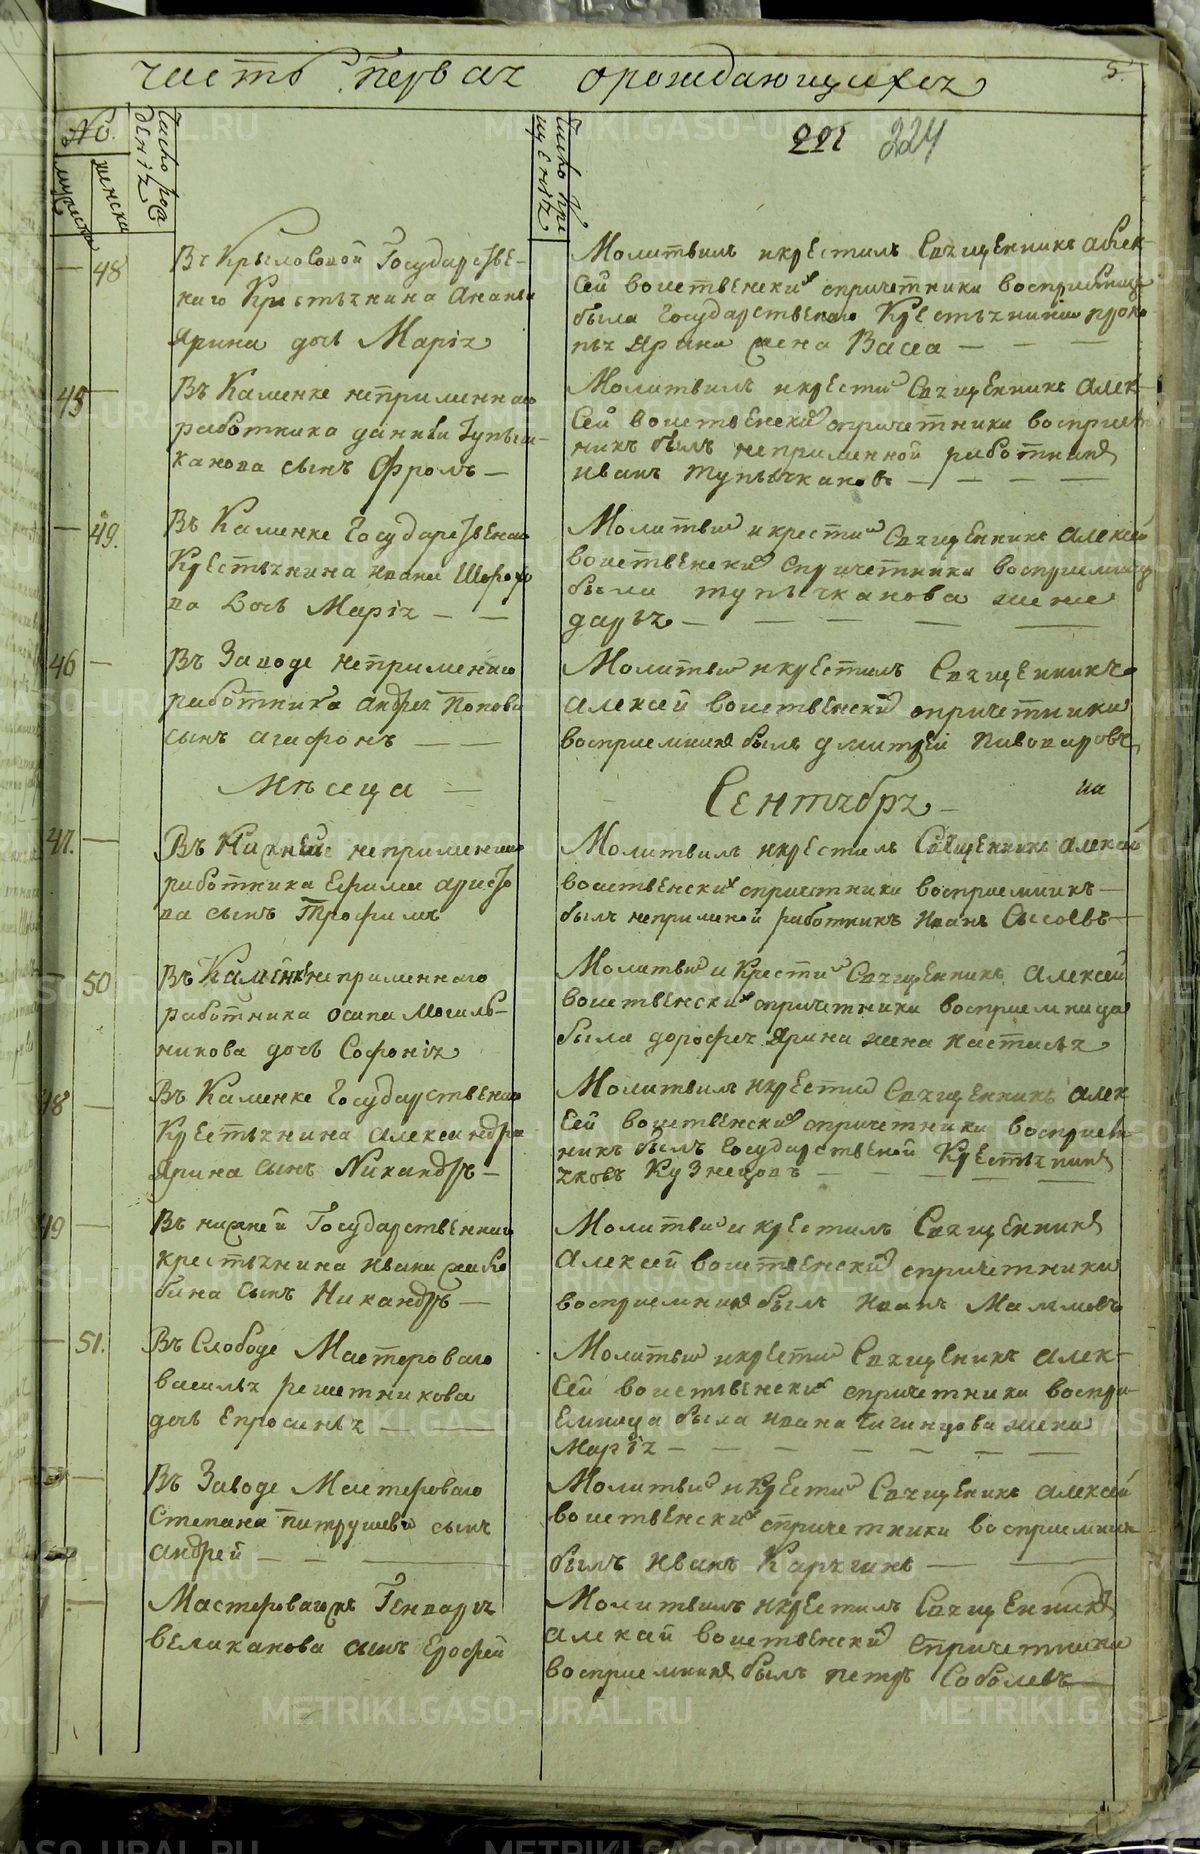 часть перва я о рождающихся
5.
№
мужеска
женска
Число рож
деніѧ
Число кре
щеніѧ
221 224
48
Въ Крыловской Государстве-
ннаго Крестьянина Ананьи
Ярина дочь Маріѧ
Молитвилъ икрестилъ Священникъ алек-
сей воиственский спричетники восприемница
была Государственнаго Крестьянина проко
пья Ярина жена Васса
45
Въ Каменке непременнаго
работника данила Тупыш-
канова сынъ Фролъ
Молитвилъ икрестил Священникъ алек-
сей воиственский спричетники восприем
никъ былъ непременной работникъ
иванъ тупычкановъ
49.
Въ Каменке Государственаго
Крестьянина ивана Шорохо
ва Дочь Маріѧ
Молитвил икрестил Священникъ алексей
воиственский спричетники восприемница
была тупычканова жена
дарья
46
Въ Заводе непременаго
работника андрея Попова
сынъ агафонъ
Молитвил икрестилъ Священникъ
алексей воиственский спричетники
восприемникъ былъ дмитрей пивоваровъ
Месеца
Сентября
47.
Въ Нижней непременнаго
работника Ефима аристо
ва сынъ Трофимъ
Молитвилъ икрестилъ Священникъ алексей
воиственский спричетники восприемникъ
былъ непременой работникъ Иванъ Сысоевъ
50
Въ Каменке непременнаго
работника осипа Могиль-
никова дочь Софоніѧ
Молитвил и Крестил Священникъ алексей
воиственский спричетники восприемница
была дорофея Ярина жена настасья
48
Въ Каменке Государственаго
Крестьянина александра
Ярина сынъ Никандръ
Молитвилъ икрестил Священникъ алек
сей воиственский спричетники восприем
никъ былъ Государственой Крестьянинъ
яковъ Кузнецовъ
49
Въ нижней Государственнаго
крестьянина ивана скоро
бина сынъ Никандръ
Молитвил и крестилъ Священникъ
алексей воиственский спричетники
восприемникъ былъ Иванъ Маминовъ
51.
Въ Слободе Мастероваго
василья решетникова
дочь Епросинья
Молитвил икрестил Священикъ алек-
сей воиственский спричетники воспри-
емница была ивана Чигинцова жена
Маріѧ
Въ Заводе Мастероваго
Степана патрушева сынъ
андрей
Молитвил икрестил Священикъ алексей
воиственский спричетники восприемник
былъ иванъ Карякинъ
Мастероваго Генварія
великанова сынъ Ерофей
Молитвилъ икрестилъ Священникъ
алексей воиственский спричетники
восприемникъ былъ петръ Соболевъ
METRIKI.GASO-URAL.RU